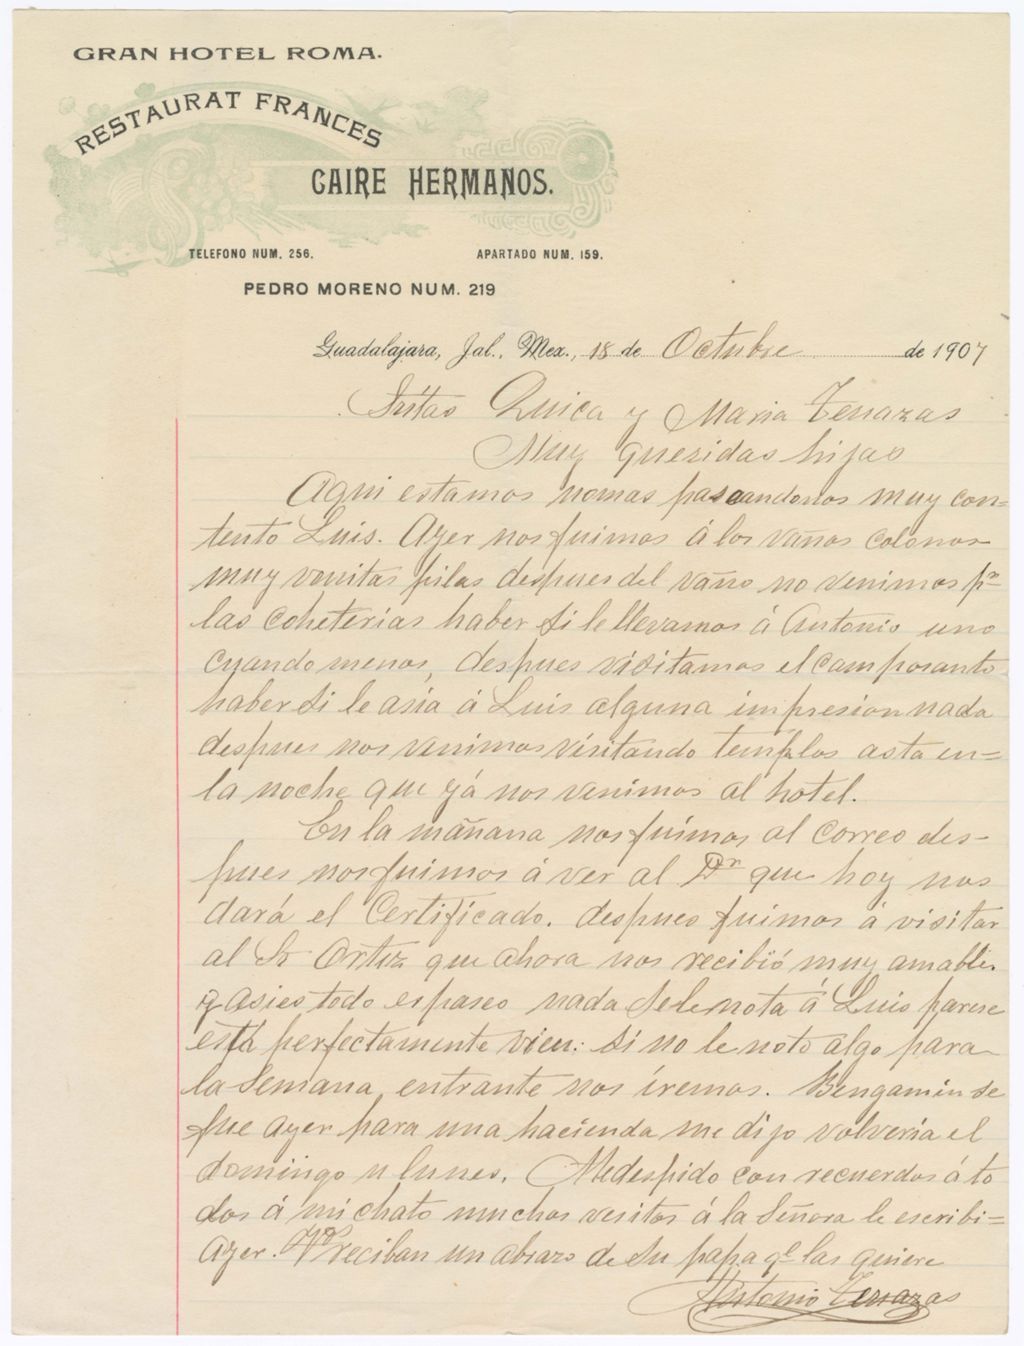 GRAN HOTEL ROMA.
RESTAURAT FRANCES
CAIRE HERMANOS.
TELEFONO NUM. 256. APARTADO NUM. 159.
PEDRO MORENO NUM. 219
Guadalajara, Jal., Mex., 18 de Octubre de 1907
Sritas Quica y Maria Terrazas
Muy queridas hijas
Aqui estamos nomas paseandonos muy con=
tento Luis. Ayer nos fuimos á los vaños colonos
muy vonitas pilas despues del vaño no venimos pr
las coheterias haber si le llevamos á Antonio uno
cuando menos, despues visitamos el camposanto
haber si le asia á Luis alguna impresion nada
despues nos venimos visitando templos asta en=
la noche que yá nos venimos al hotel.
En la mañana nos fuimos al correo des-
pues nos fuimos á ver al Dr que hoy nos
dará el Certificado. despues fuimos á visitar
al Sr Ortiz que ahora nos recibió muy amable.
y asi es todo es paseo nada se le nota á Luis parese
está perfectamente vien: si no le noto algo para
la Semana entrante nos iremos. Bengamin se
fue ayer para una hacienda me dijo volveria el
domingo u lunes. Me despido con recuerdos á to
dos á mi chato muchos vesitos á la Señora le escribi=
ayer. Vds reciban un abrazo de su papa qe las quiere
Antonio Terrazas